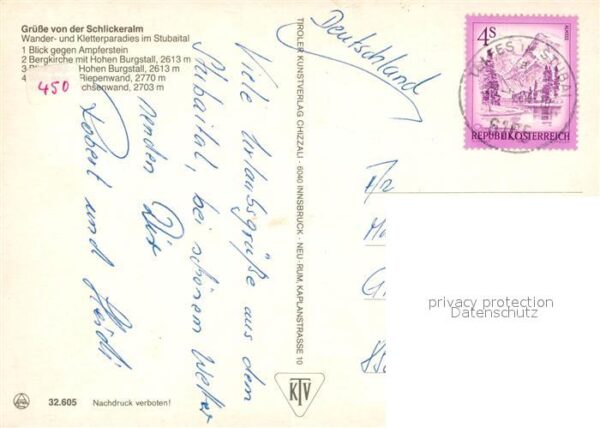 Grüße von der Schlickeralm
Wander- und Kletterparadies im Stubaital
1 Blick gegen Ampferstein
2 Bergkirche mit Hohen Burgstall, 2613 m
3 Hohen Burgstall, 2613 m
4 Riepenwand, 2770 m
chsenwand, 2703 m
450
Viele Urlaubsgrüße aus dem
Stubaital, bei schönem Wetter
senden Dir
Robert und Heidi
32.605 Nachdruck verboten!
TIROLER KUNSTVERLAG CHIZZALI · 6040 INNSBRUCK - NEU-RUM, KAPLANSTRASSE 10
KTV
Deutschland
4S
REPUBLIK ÖSTERREICH
STUBAI
6165
privacy protection
Datenschutz